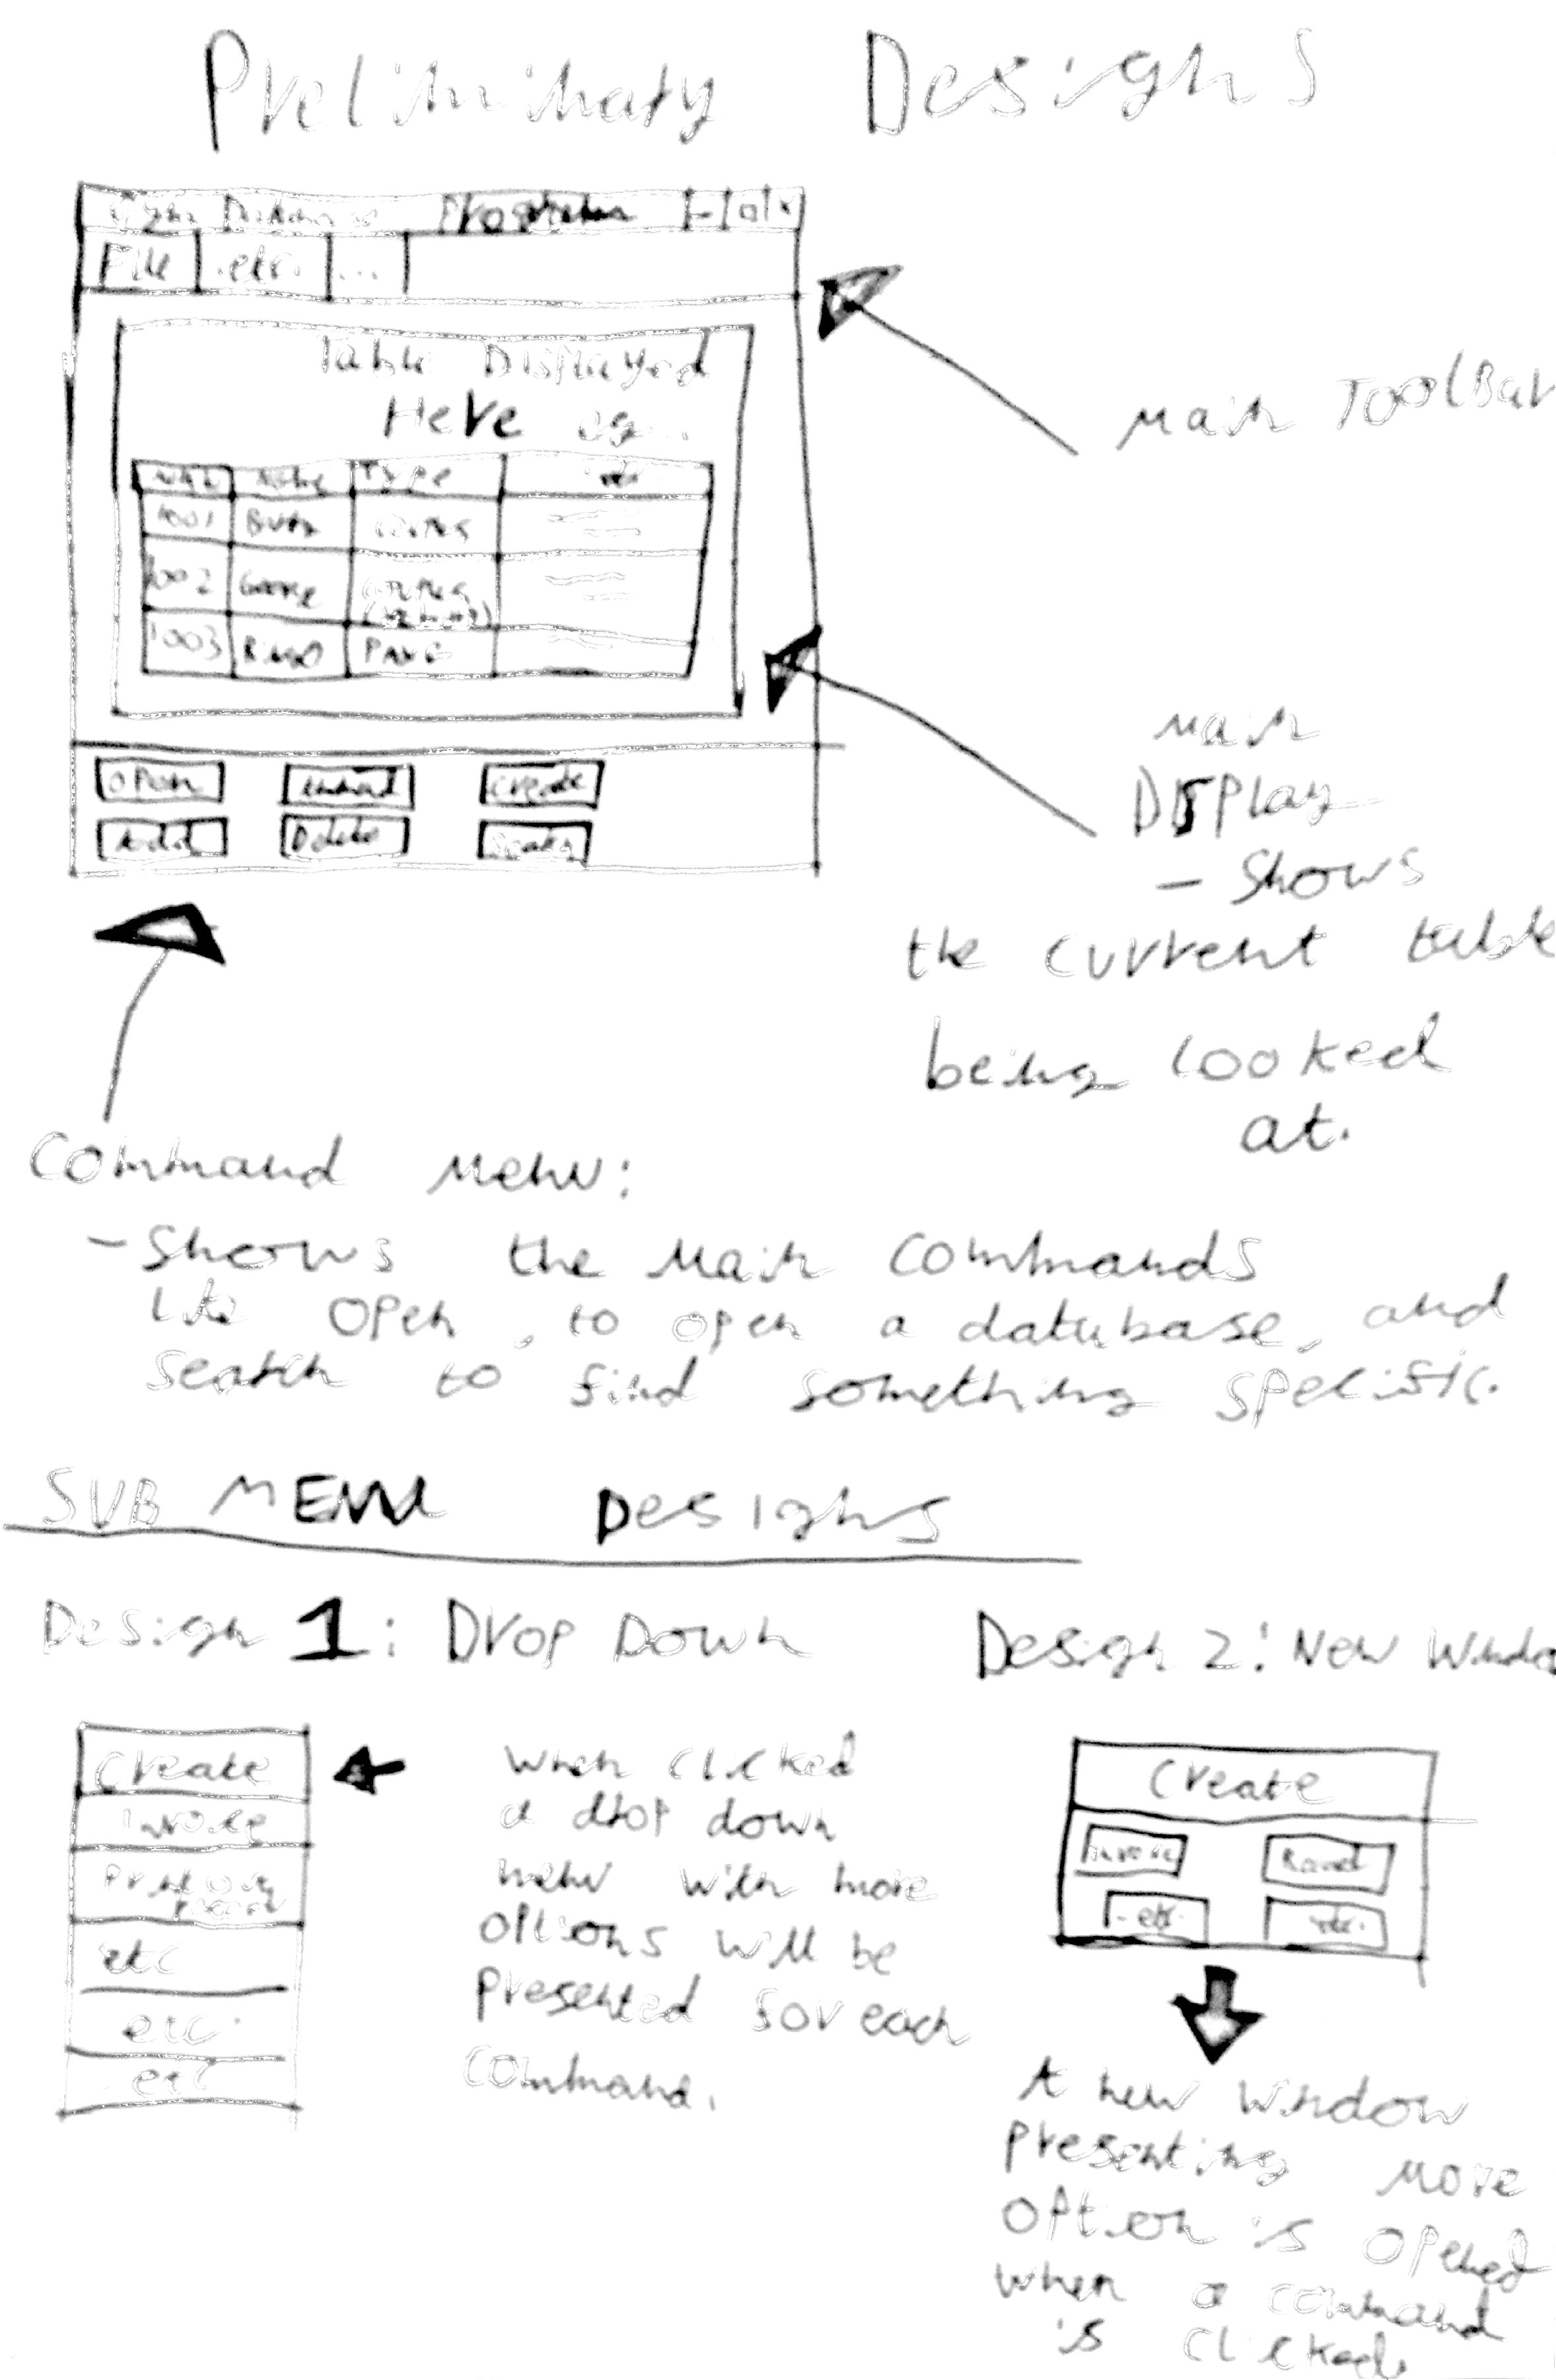 Preliminary Designs
Program
File etc. ...
Table Displayed
Here eg..
Type etc
1001
1002 George
1003 Ringo
Open Create
Add Delete Search
Main ToolBar
Main
Display
- Shows
the current table
being looked
at.
Command Menu:
- Shows the Main Commands
like open, to open a database, and
search to find something specific.
SUB MENU Designs
Design 1: Drop Down
Create
Invoice
etc
etc.
etc
when clicked
a drop down
menu with more
options will be
presented for each
command.
Design 2: New Window
Create
Invoice
etc. etc.
A new window
presenting more
option is opened
when a command
is clicked.